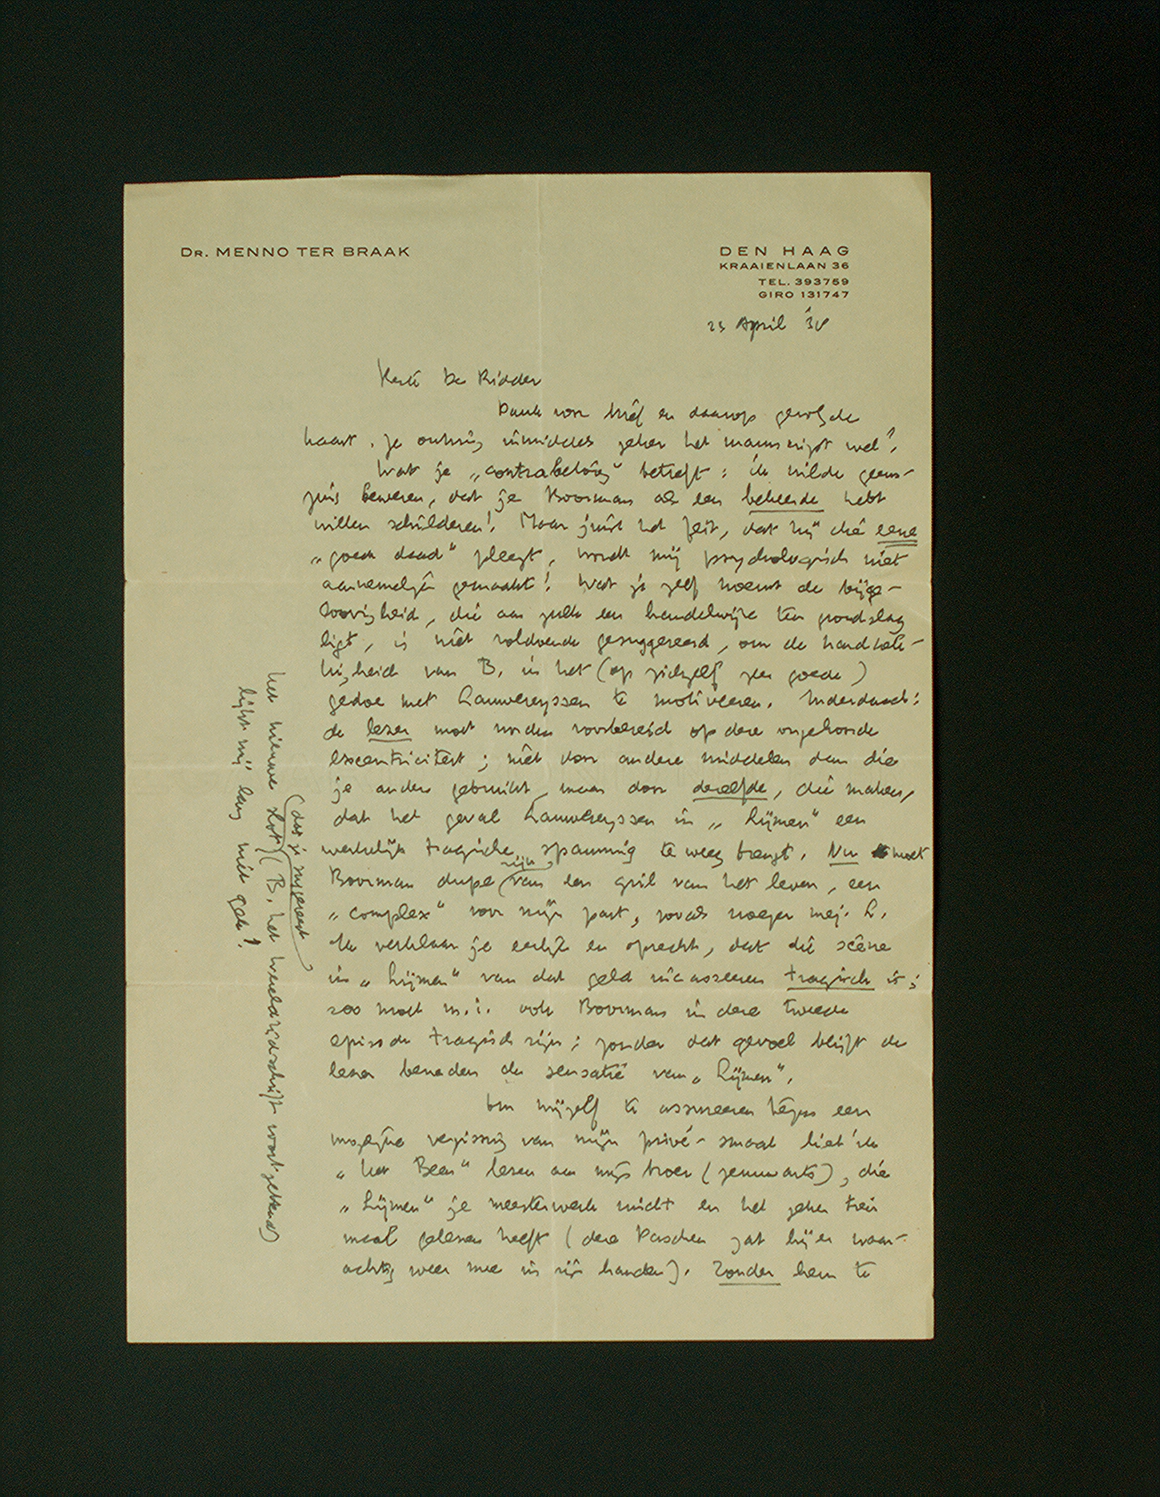 DR. MENNO TER BRAAK
DEN HAAG
KRAAIENLAAN 36
TEL. 393759
GIRO 131747
23 April '38
Beste De Ridder
Dank voor brief en daarop gevolgde
kaart. Je ontving inmiddels zeker het manuscript wel?
Wat je „contrabetoog” betreft: ik wilde geens-
zins beweren, dat je Boorman als een bekeerde hebt
willen schilderen! Maar juist het feit, dat hij die eene
„goede daad” pleegt, wordt mij psychologisch niet
aannemelijk gemaakt! Wat je zelf noemt de bijge-
loovigheid, die aan zulk een handelwijze ten grondslag
ligt, is niet voldoende gesuggereerd, om de hardnek-
kigheid van B. in het (op zichzelf zeer goede)
gedoe met Lauwereyssen te motiveeren. Inderdaad:
de lezer moet worden voorbereid op deze ongehoorde
excentriciteit; niet door andere middelen dan die
je anders gebruikt, maar door dezelfde, die maken,
dat het geval Lauwereyssen in „Lijmen” een
werkelijk tragische spanning te weeg brengt. Nu moet
Boorman dupe zijn van een gril van het leven, een
„complex” voor mijn part, zooals vroeger mej. L.
Ik verklaar je eerlijk en oprecht, dat die scène
in „Lijmen” van dat geld incasseeren tragisch is;
zoo moet m.i. ook Boorman in deze tweede
episode tragisch zijn; zonder dat gevoel blijft de
lezer beneden de sensatie van „Lijmen”.
Om mijzelf te assureeren tegen een
mogelijke vergissing van mijn privé-smaak liet ik
„Het Been” lezen aan mijn broer (zenuwarts), die
„Lijmen” je meesterwerk vindt en het zeker tien
maal gelezen heeft (deze Paschen zat hij er waar-
achtig weer mee in zijn handen). Zonder hem te
Het nieuwe slot (dat je suggereert) (B. het Wereldtijdschrift voortzettend)
lijkt mij lang niet gek!